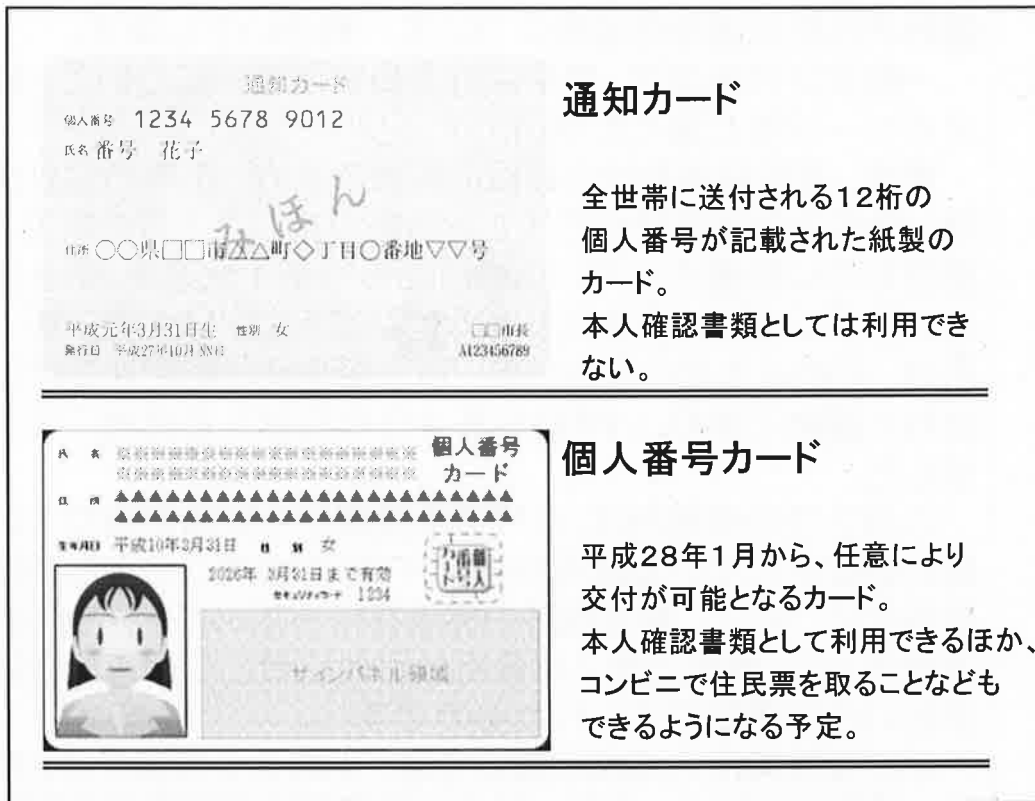 通知カード
個人番号 1234 5678 9012
氏名 番号 花子
みほん
住所 ○○県□□市△△町◇丁目○番地▽▽号
平成元年3月31日生 性別 女
□□市長
発行日 平成27年10月
A123456789
通知カード
全世帯に送付される12桁の
個人番号が記載された紙製の
カード。
本人確認書類としては利用でき
ない。
個人番号
カード
氏 名 ※※※※※※※※※※※※※※※※※※
※※※※※※※※※※※※※※※※※※
住 所 ▲▲▲▲▲▲▲▲▲▲▲▲▲▲▲▲▲▲▲▲▲▲▲
▲▲▲▲▲▲▲▲▲▲▲▲▲▲▲▲▲▲▲▲▲▲▲
生年月日 平成10年3月31日 性 別 女
2026年 3月31日まで有効
セキュリティコード 1234
個人番号カード
サインパネル領域
個人番号カード
平成28年1月から、任意により
交付が可能となるカード。
本人確認書類として利用できるほか、
コンビニで住民票を取ることなども
できるようになる予定。